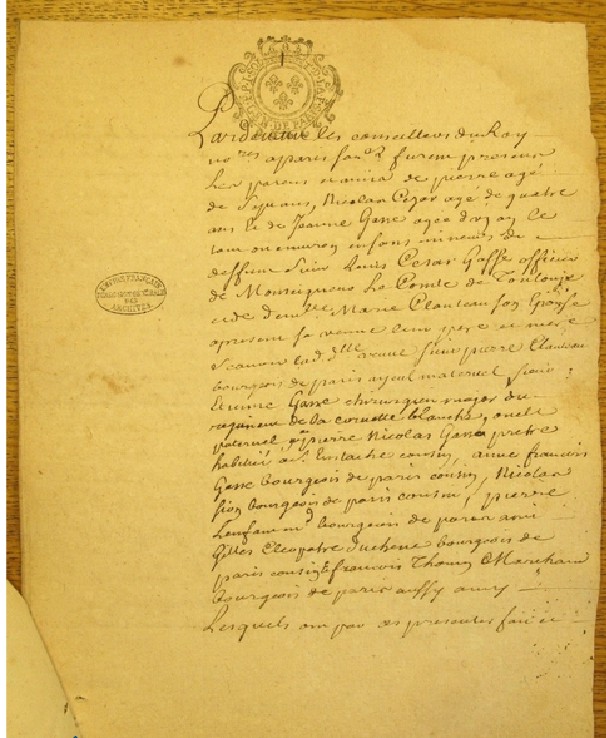 Pardevant les conseillers du Roy
no.res a paris sou.nez furent presens
Les parens et amis de pierre agé
de ans, Nicolas Cezar agé de quatre
ans Et de Jeanne Gasse agée d'un an le
tout ou environ enfans mineurs de
deffunt Sieur Louis Cesar Gasse officier
de Monseigneur Le Comte de Toulouze
et de dam.lle Marie Clauteau son Epouse
apresent sa veuve leur pere et mere
Scavoir lad. dlle veuve sieur pierre Clauteau
bourgeois de paris ayeul maternel, sieur
Etienne Gasse chirurgien major du
regiment de la cornette blanche, oncle
paternel, pierre Nicolas Gasse pretre
habitué a St. Eustache cousin, francois
Gasse bourgeois de paris cousin, Nicolas
bourgeois de paris cousin, pierre
bourgeois de paris amy
Gilles Cleopatre Duchene bourgeois de
paris cousin & francois Thomas Marchand
bourgeois de paris aussy amy
Lesquels ont par ces presentes fait et